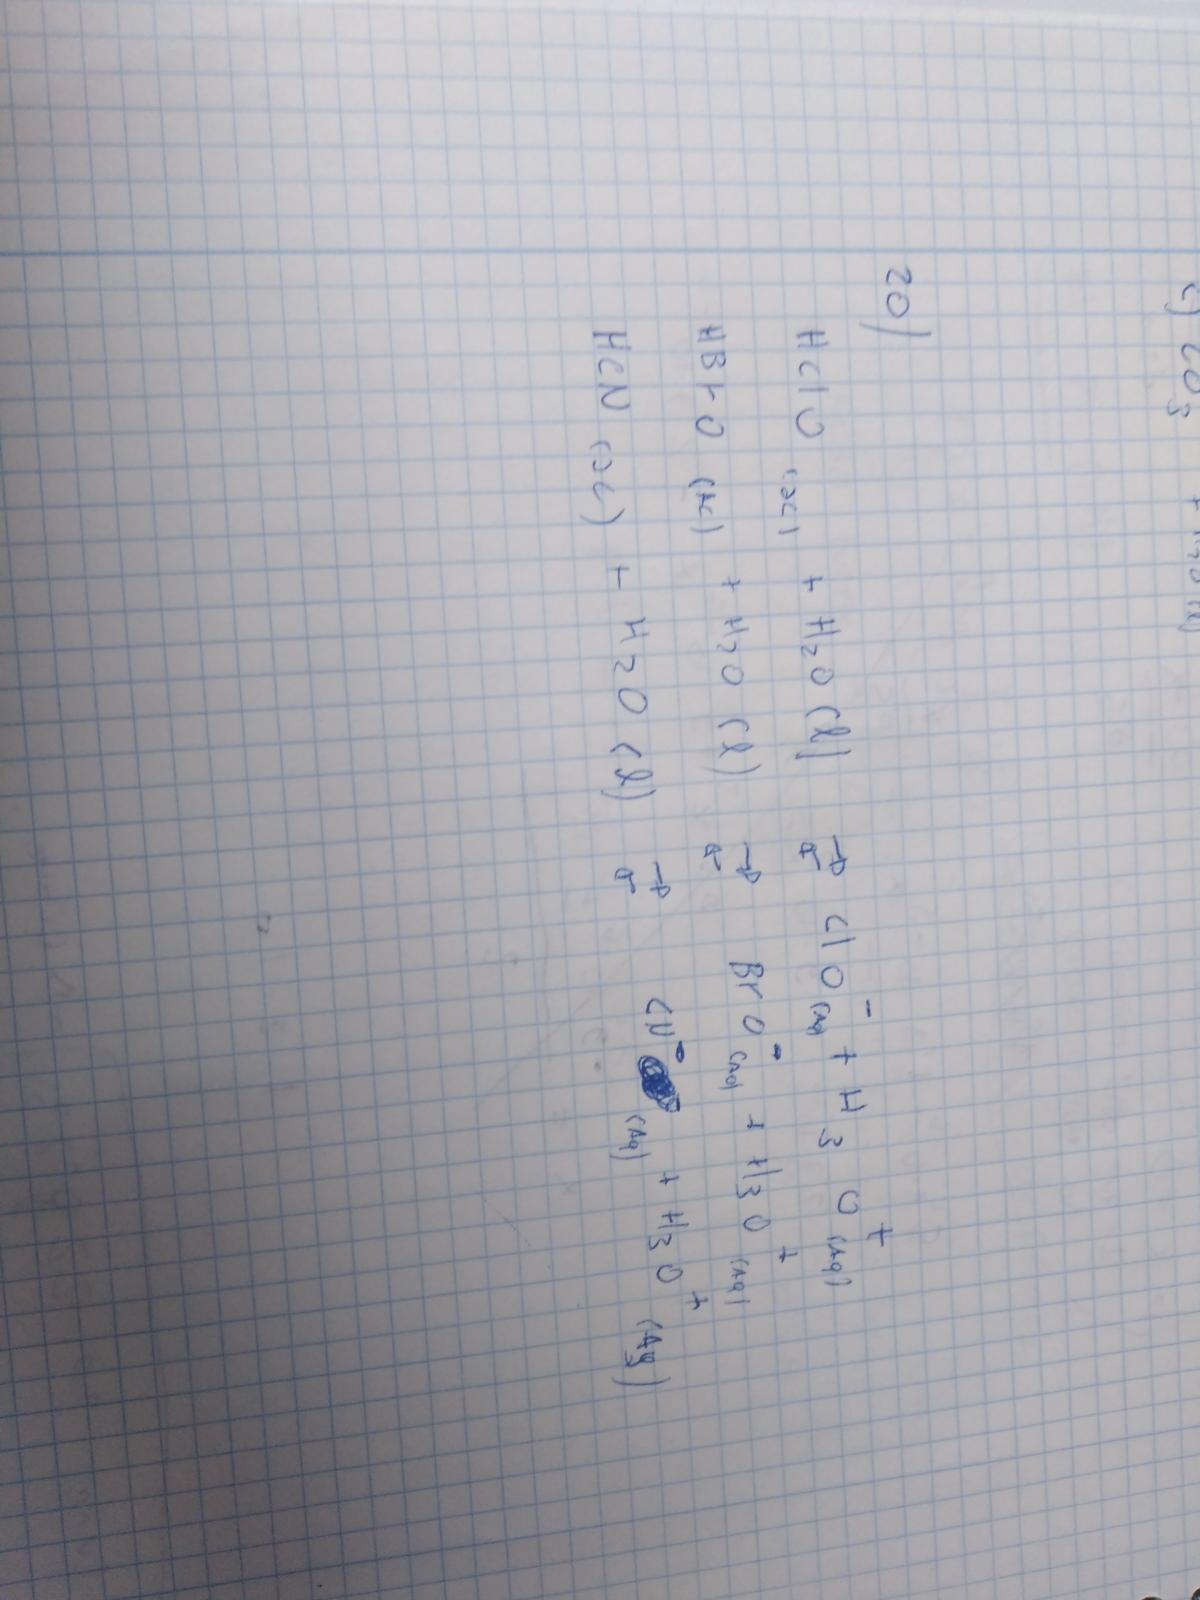 c) CO3 + H2O (l)
20/
HClO (ac) + H2O (l) ⇌ ClO⁻ (aq) + H3O⁺ (aq)
HBrO (ac) + H2O (l) ⇌ BrO⁻ (aq) + H3O⁺ (aq)
HCN (ac) + H2O (l) ⇌ CN⁻ (aq) + H3O⁺ (aq)